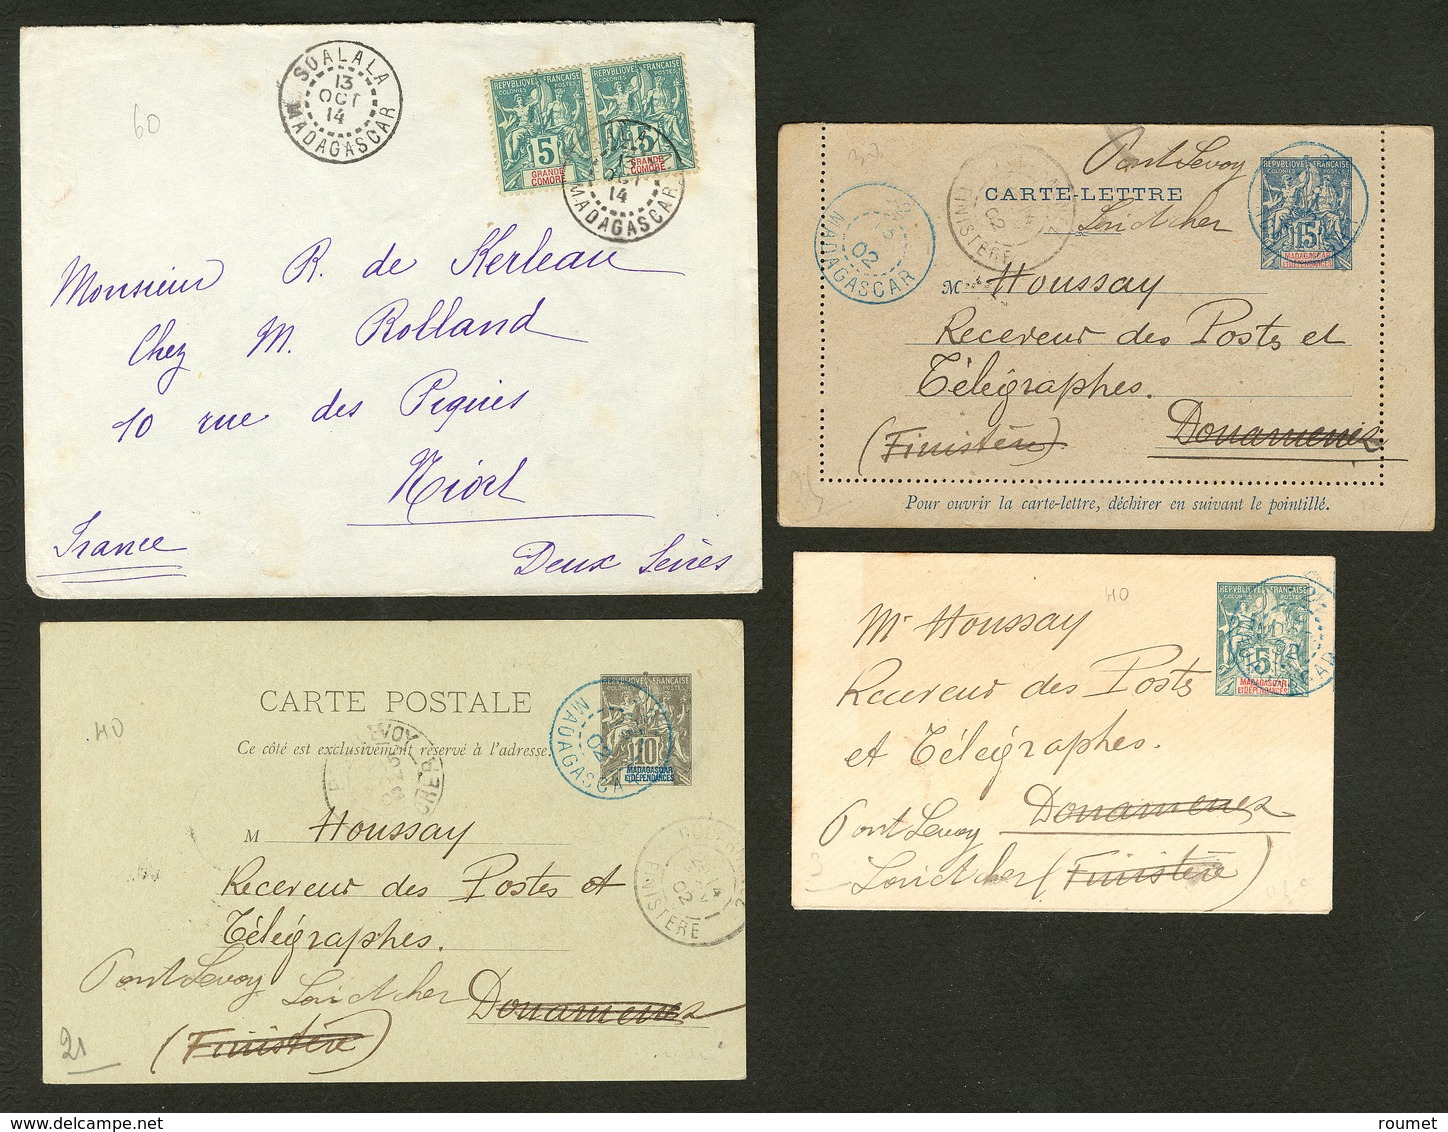 60
SOALALA
13
OCT
14
MADAGASCAR
REPVBLIQVE FRANÇAISE
COLONIES POSTES
5
GRANDE
COMORE
REPVBLIQVE FRANÇAISE
COLONIES POSTES
5
GRANDE
COMORE
13
OCT
14
MADAGASCAR
Monsieur R. de Kerleau
Chez M. Rolland
10 rue des Piquies
Niort
France
Deux Sèvres
Pont Levoy
CARTE-LETTRE
Loir et Cher
REPVBLIQVE FRANÇAISE
COLONIES POSTES
15
MADAGASCAR
ET DÉPENDANCES
02
MADAGASCAR
02
FINISTERE
M Houssay
Receveur des Postes et
Télégraphes.
(Finistère) Douarnenez
Pour ouvrir la carte-lettre, déchirer en suivant le pointillé.
CARTE POSTALE
Ce côté est exclusivement réservé à l'adresse.
40
REPVBLIQVE FRANÇAISE
COLONIES POSTES
10
MADAGASCAR
ET DÉPENDANCES
02
MADAGASCA
M Houssay
Receveur des Postes et
Télégraphes.
Pont Levoy Loir et Cher Douarnenez
(Finistère)
21
14
02
FINISTERE
40
REPVBLIQVE FRANÇAISE
COLONIES POSTES
5
MADAGASCAR
ET DÉPENDANCES
02
Mr Houssay
Receveur des Postes
et Télégraphes.
Pont Levoy Douarnenez
Loir et Cher (Finistère)
roumet